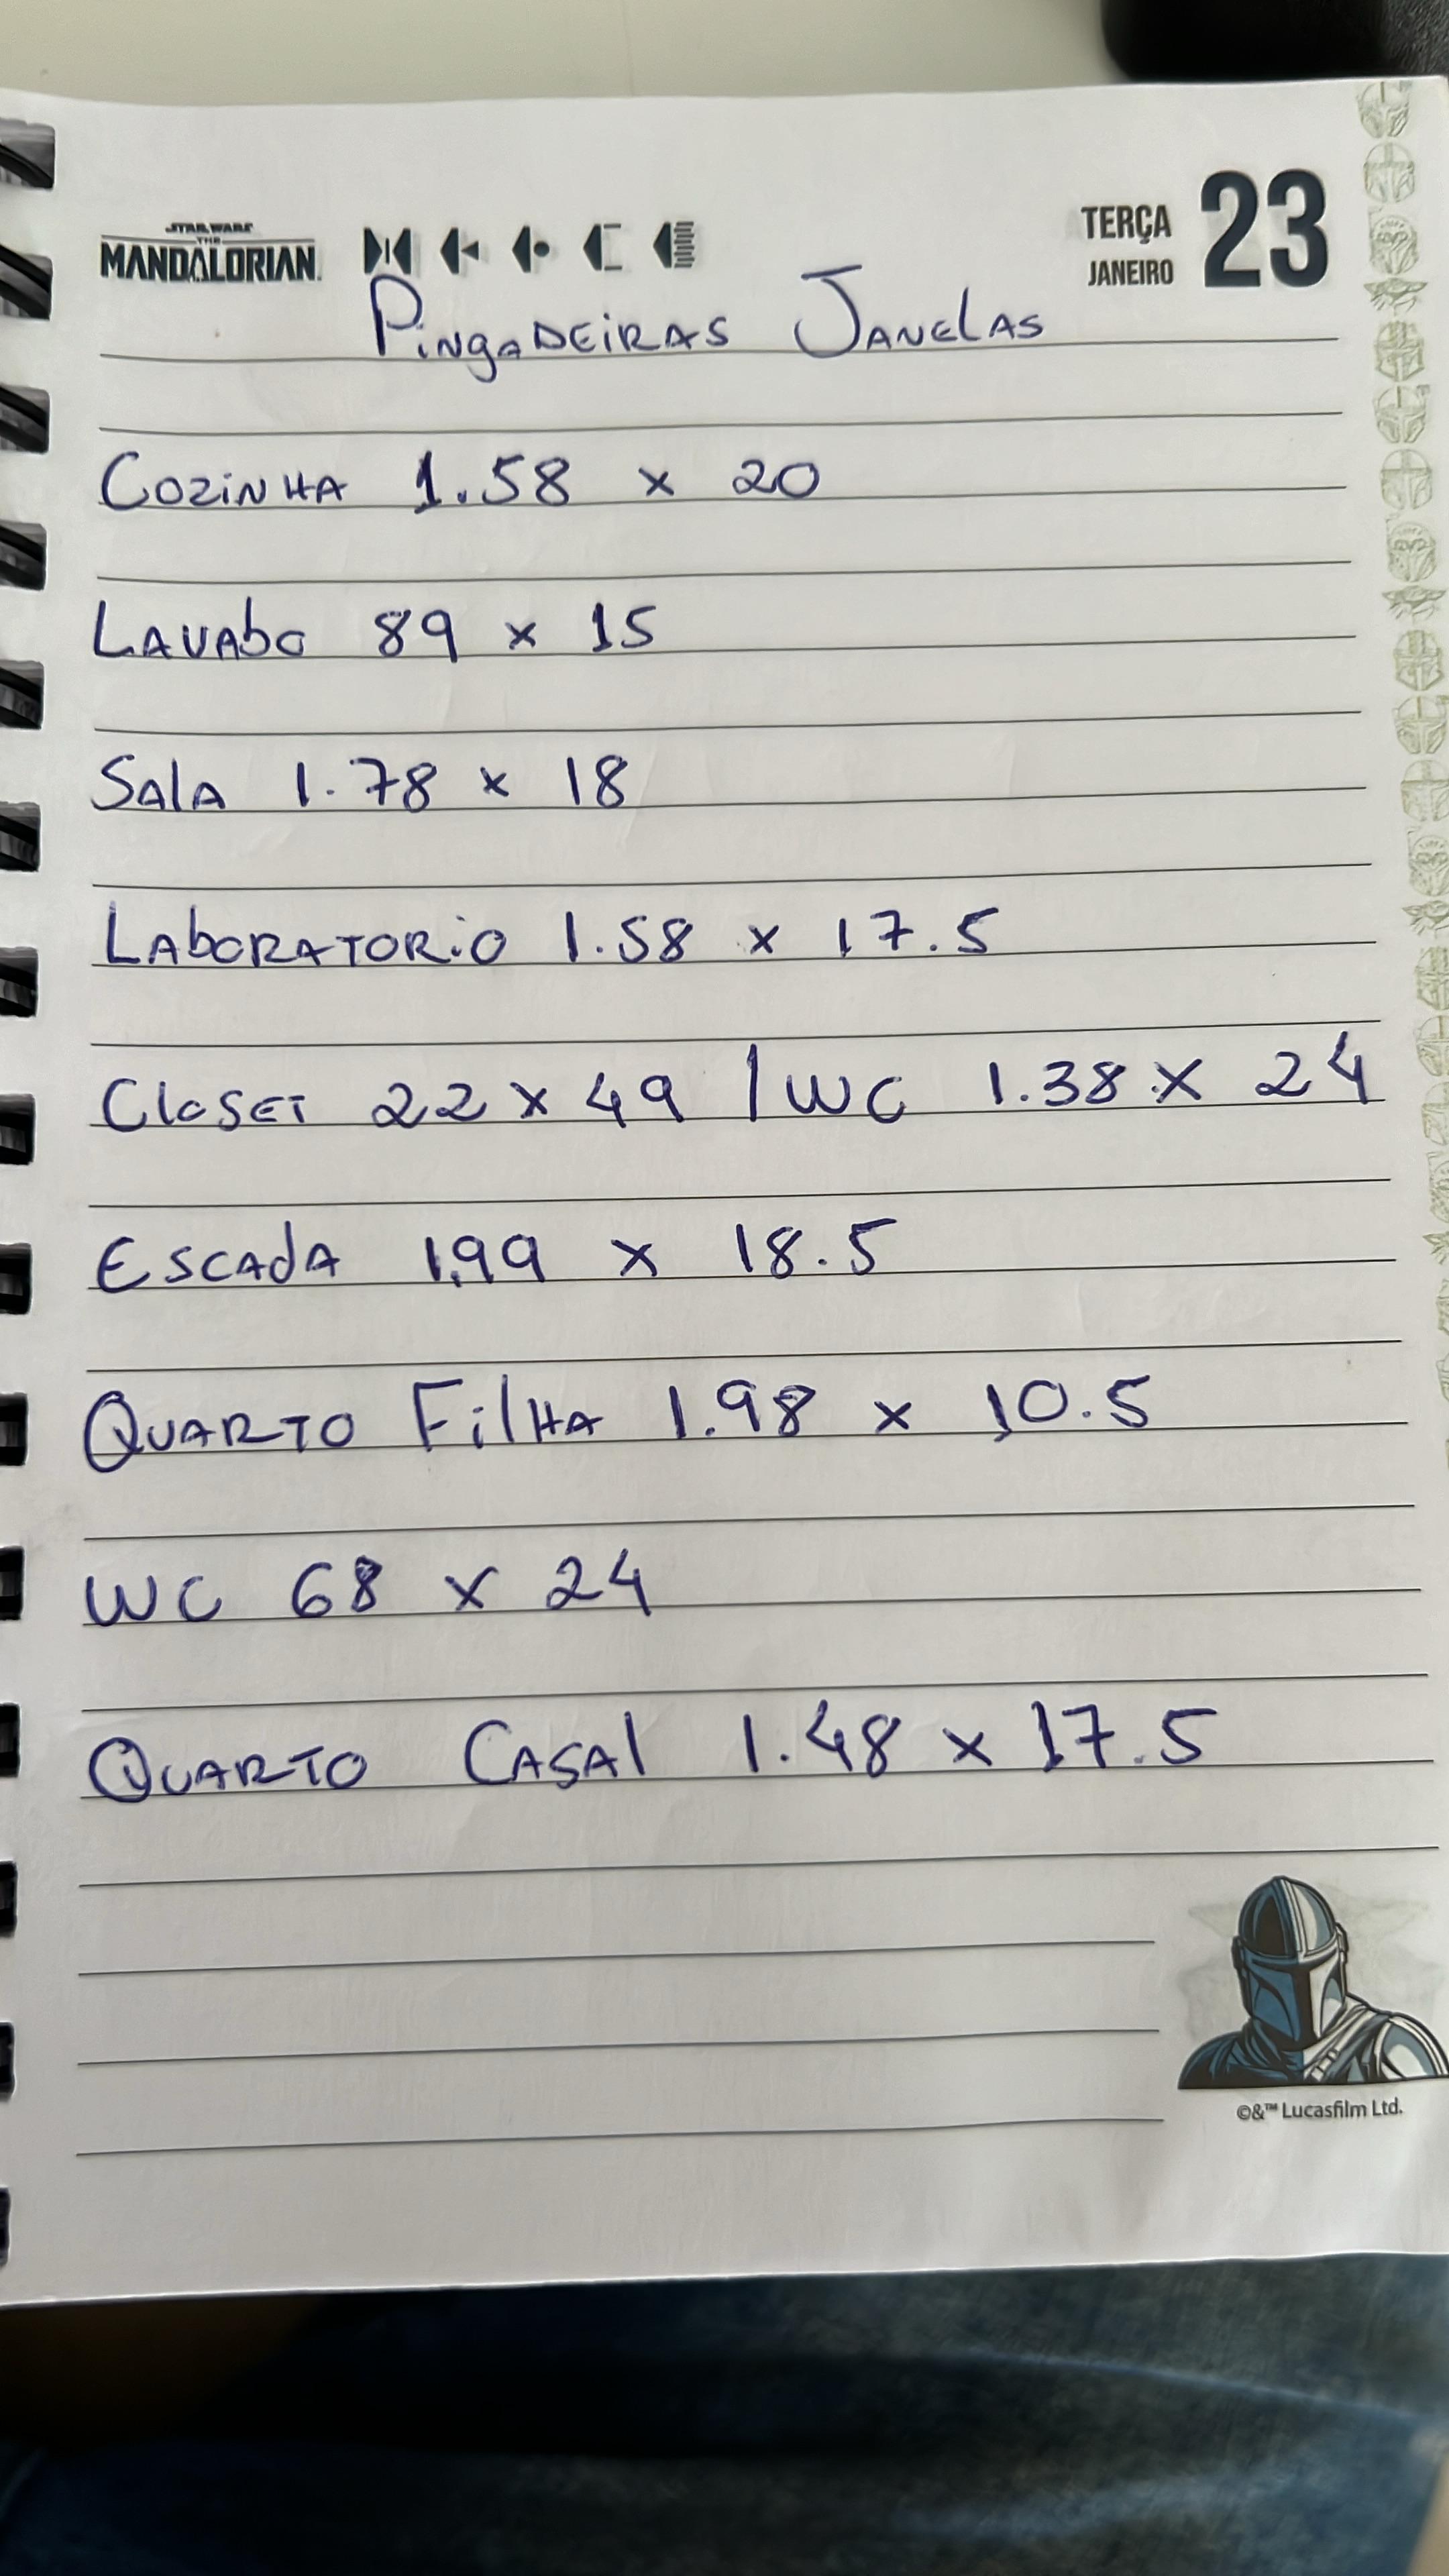 STAR WARS
THE
MANDALORIAN
TERÇA
JANEIRO
23
PiNgADEiRAS JANELAS
COZiNHA 1.58 x 20
LAVAbO 89 x 15
SAlA 1.78 x 18
LAbORATORiO 1.58 x 17.5
CloSET 22 x 49 | WC 1.38 x 24
ESCAdA 1.99 x 18.5
QUARTO FilHA 1.98 x 10.5
WC 68 x 24
QUARTO CASAl 1.48 x 17.5
©&™ Lucasfilm Ltd.